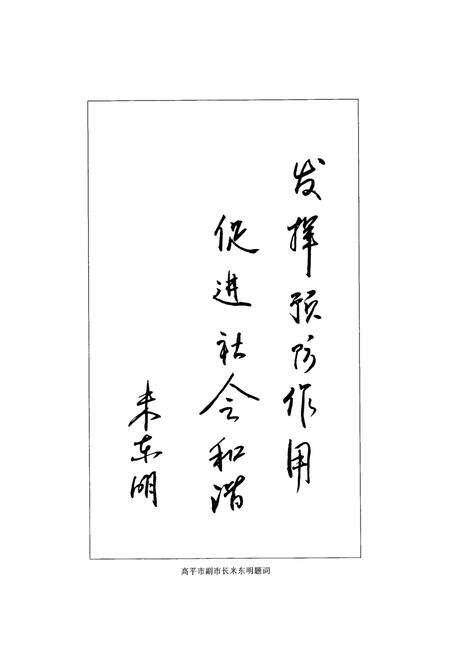 发挥预防作用
促进社会和谐
来东明
高平市副市长来东明题词